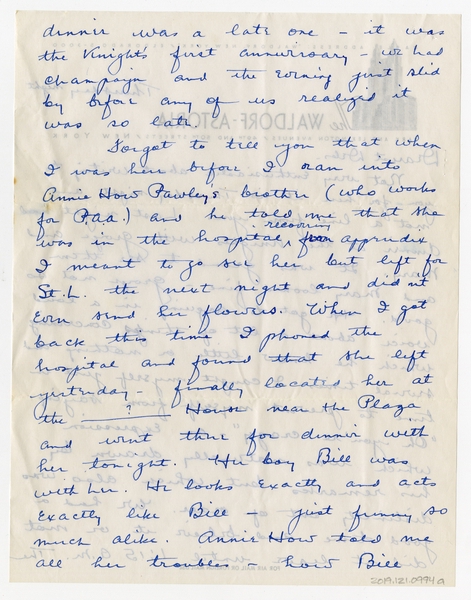 dinner was a late one – it was
the Knight's first anniversary – we had
champaign and the evening just slid
by before any of us realized it
was so late.
Forgot to tell you that when
I was here before I ran into
Annie How Pawley's brother (who works
for P.A.A.) and he told me that she
was in the hospital, recovering from appendix
I meant to go see her but left for
St. L. the next night and didn't
even send her flowers. When I got
back this time I phoned the
hospital and found that she left
yesterday – finally located her at
the ____?____ House near the Plaza
and went there for dinner with
her tonight. Her boy Bill was
with her. He looks exactly and acts
exactly like Bill – just funny so
much alike. Annie How told me
all her troubles – how Bill
The WALDORF-ASTORIA
2019.121.0994a